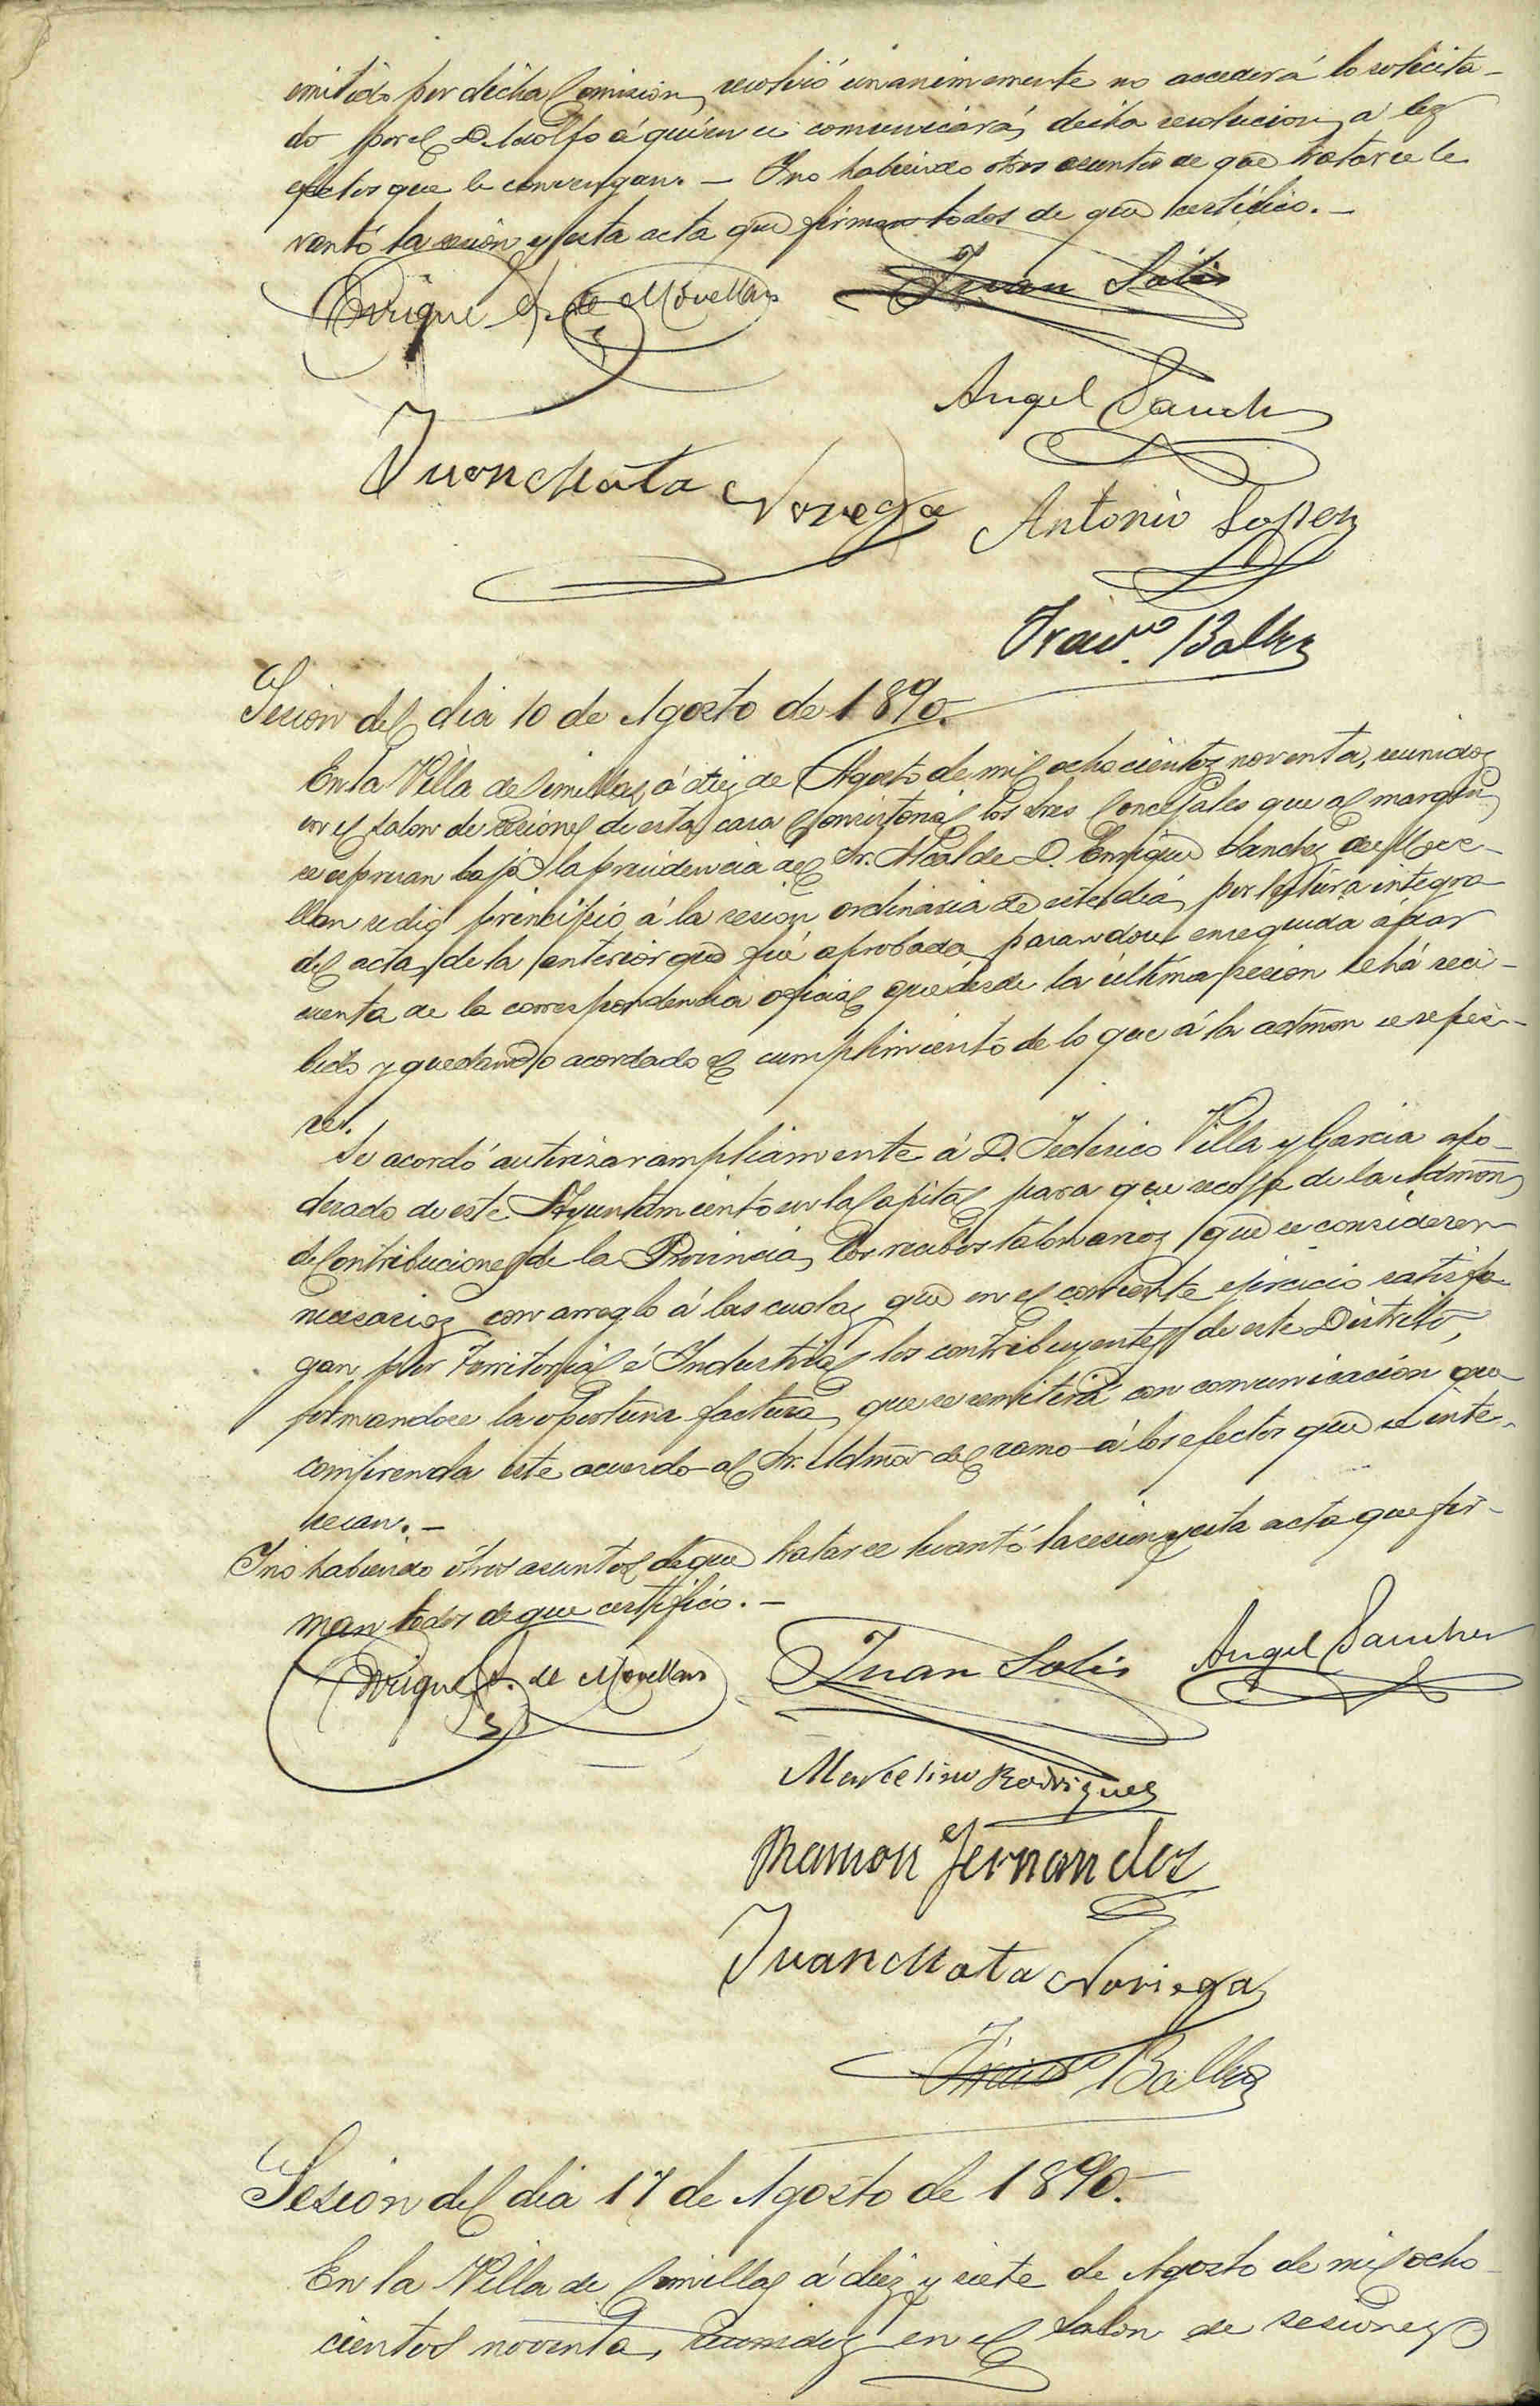 emitido por dicha Comision, resolvió unanimemente no acceder á lo solicita-
do por el D. Adolfo á quien se comunicará, dicha resolucion, a los
efectos que le convengan. — Y no habiendo otros asuntos de que tratar se le
vantó la sesion y esta acta que firman todos de que certifico. —
Enrique S. de Movellan Juan Solis
Angel Sanchez
Juan Mata Noriega
Antonio Lopez
Franco. Balbas
Sesion del dia 10 de Agosto de 1890.
En la Villa de Comillas, á diez de Agosto de mil ochocientos noventa, reunidos
en el salon de sesiones de esta casa Consistorial los Sres Concejales que al margen
se expresan bajo la presidencia del Sr. Alcalde D. Enrique Sanchez de Move-
llan se dió principio á la sesion ordinaria de este dia, por lectura integra
del acta de la anterior que fué aprobada, pasandose enseguida á dar
cuenta de la correspondencia oficial que desde la última sesion se há reci-
bido y quedando acordado el cumplimiento de lo que á la admon se refie-
re.
Se acordó autorizar ampliamente á D. Federico Villa y Garcia apo-
derado de este Ayuntamiento en la Capital para que recoja de la Admon
de Contribuciones de la Provincia, los recibos talonarios que se consideren
necesarios con arreglo á las cuotas que en el corriente ejercicio satisfa
gan por Territorial é Industrial los contribuyentes de este Distrito,
formandose la oportuna factura, que se remitirá con comunicación que
comprenda este acuerdo al Sr. Admor del ramo á los efectos que se inte-
resan. —
Y no habiendo otros asuntos de que tratar se levantó la sesion y esta acta que fir-
man todos de que certifico. —
Enrique S. de Movellan Juan Solis Angel Sanchez
Marcelino Rodriguez
Ramon Fernandez
Juan Mata Noriega
Franco Balbas
Sesion del dia 17 de Agosto de 1890.
En la Villa de Comillas á diez y siete de Agosto de mil ocho
cientos noventa, reunidos en el salon de sesiones